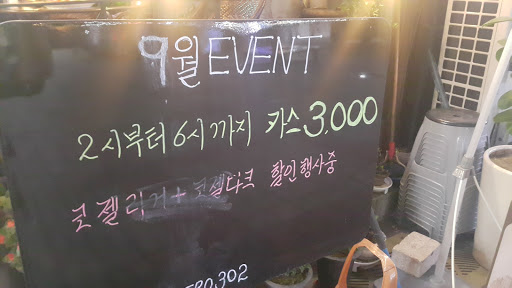 9월 EVENT
2시부터 6시까지 카스 3,000
코젤라거+코젤다크 할인행사중
580,302